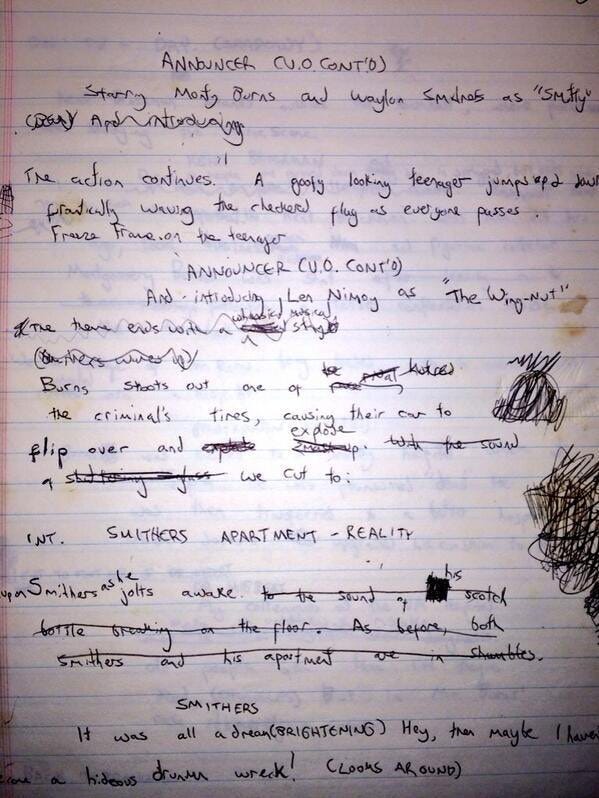 ANNOUNCER (V.O. CONT'D)
Starring Monty Burns and Waylon Smithers as "Smitty"
And introducing
The action continues. A goofy looking teenager jumps up and down
frantically waving the checkered flag as everyone passes.
Freeze Frame on the teenager
ANNOUNCER (V.O. CONT'D)
And introducing, Len Nimoy as "The Wing-Nut!"
The theme ends with a musical sting
Burns shoots out one of the rival
the criminal's tires, causing their car to
flip over and explode. With the sound
of shattering glass we cut to:
INT. SMITHERS APARTMENT - REALITY
upon Smithers as he jolts awake. to the sound of his scotch
bottle breaking on the floor. As before, both
Smithers and his apartment are in shambles.
SMITHERS
It was all a dream (BRIGHTENING) Hey, then maybe I haven't
a hideous drunken wreck! (LOOKS AROUND)